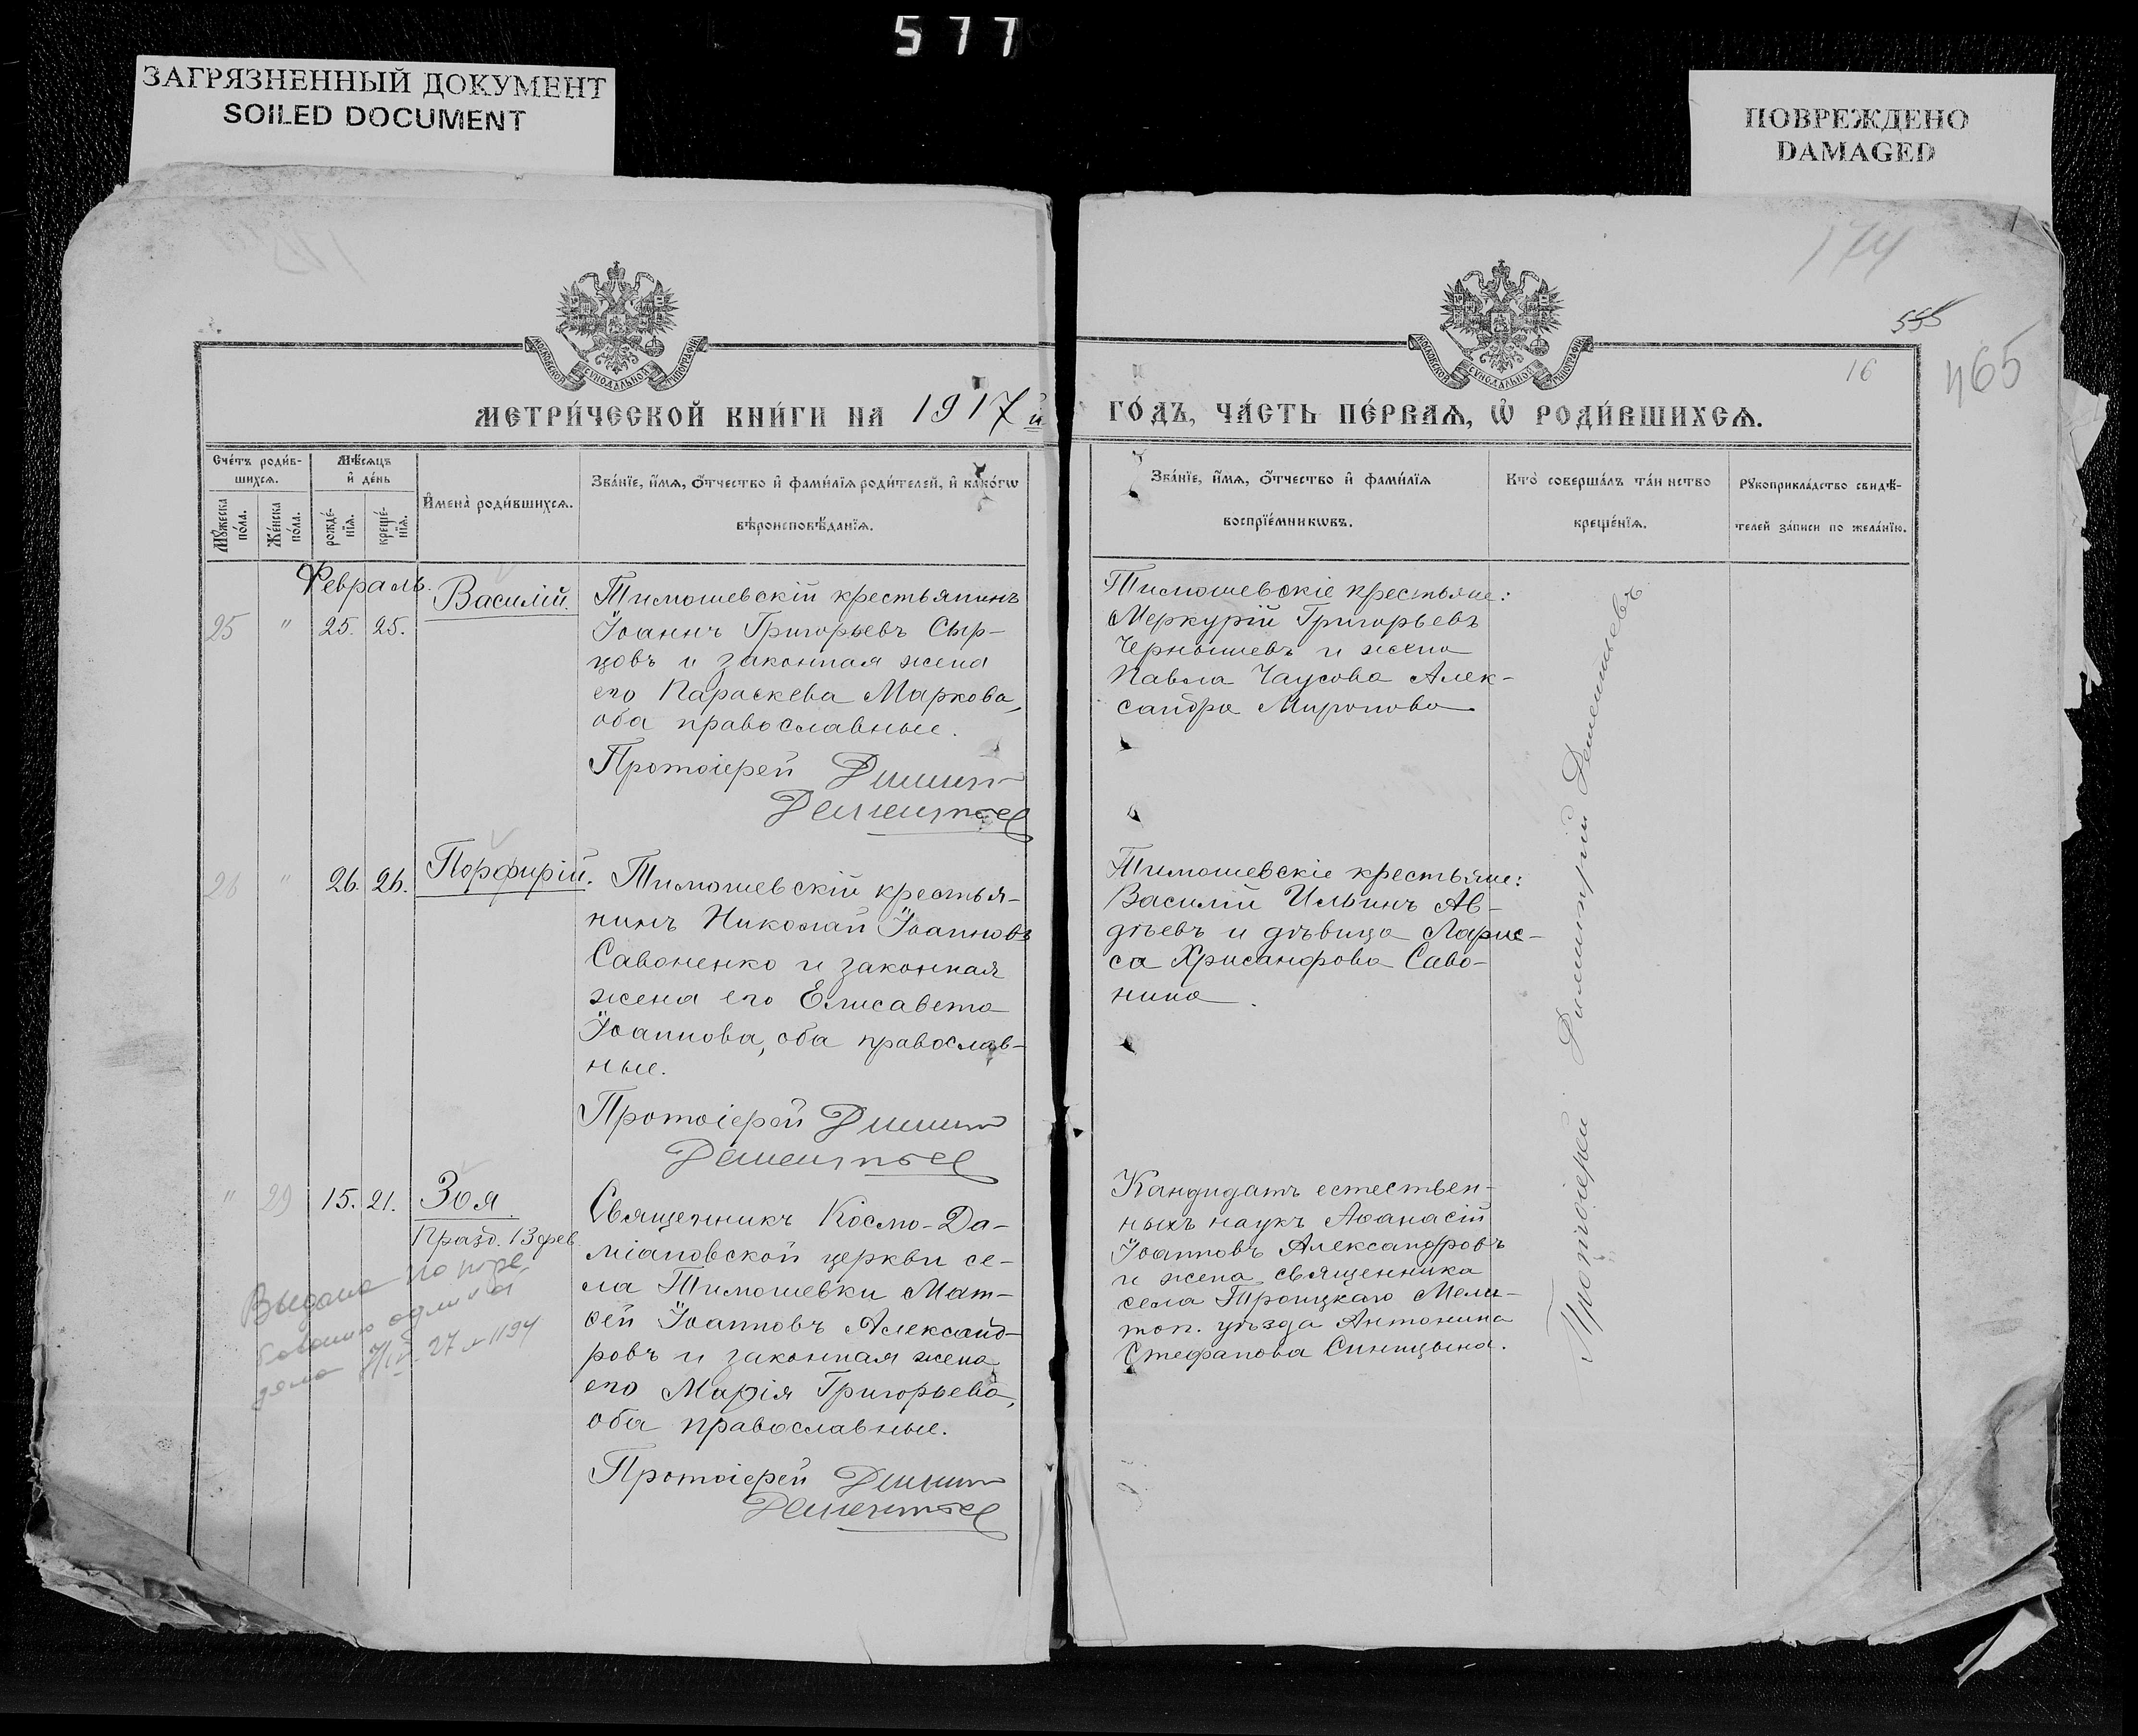 577
ЗАГРЯЗНЕННЫЙ ДОКУМЕНТ
SOILED DOCUMENT
ПОВРЕЖДЕНО
DAMAGED
174
555
16
465
МОСКОВСКОЙ СѴНОДАЛЬНОЙ ТИПОГРАФІИ
МОСКОВСКОЙ СѴНОДАЛЬНОЙ ТИПОГРАФІИ
МЕТРИ́ЧЕСКОЙ КНИ́ГИ НА 1917 й
ГО́ДЪ, ЧА́СТЬ ПЕ́РВАѦ, Ѡ҆ РОДИ́ВШИХСѦ.
Сче́тъ роди́в-
шихсѧ.
Мꙋ́жеска
по́ла.
Же́нска
по́ла.
Мѣ́сѧцъ
и҆ де́нь
рожде́-
нїѧ.
креще́-
нїѧ.
И҆мена̀ роди́вшихсѧ.
Зва́нїе, и҆́мѧ, ѻ҆́тчество и҆ фами́лїѧ роди́телей, и҆ како́гѡ
вѣроисповѣ́данїѧ.
Зва́нїе, и҆́мѧ, ѻ҆́тчество и҆ фами́лїѧ
воспрїе́мникѡвъ.
Кто̀ соверша́лъ та́инство
креще́нїѧ.
Рꙋкоприкла́дство свидѣ́-
телей за́писи по жела́нїю.
Февраль.
25 " 25. 25.
Василій.
Тимошевскій крестьянинъ
Іоаннъ Григорьевъ Сыр-
цовъ и законная жена
его Параскева Маркова,
оба православные.
Протоіерей Димит
Дементьев
Тимошевскіе крестьяне:
Меркурій Григорьевъ
Чернышевъ и жена
Павла Чаусова Алек-
сандра Миронова
26 " 26. 26.
Порфирій.
Тимошевскій крестья-
нинъ Николай Іоанновъ
Савоненко и законная
жена его Елисавета
Іоаннова, оба православ-
ные.
Протоіерей Димит
Дементьев
Тимошевскіе крестьяне:
Василій Ильинъ Ав-
дѣевъ и дѣвица Ларис-
са Хрисанфова Саво-
нина.
" 29 15. 21.
Зоя.
Празд. 13 фев
Выдана по
27 № 1194
Священникъ Космо-Да-
міановской церкви се-
ла Тимошевки Мат-
ѳей Іоанновъ Александ-
ровъ и законная жена
его Марія Григорьева,
оба православные.
Протоіерей Димит
Дементьев
Кандидатъ естествен-
ныхъ наукъ Аѳанасій
Іоанновъ Александровъ
и жена священника
села Троицкаго Мели-
топ. уѣзда Антонина
Стефанова Синицына.
Протоіерей Димитрій Дементьевъ